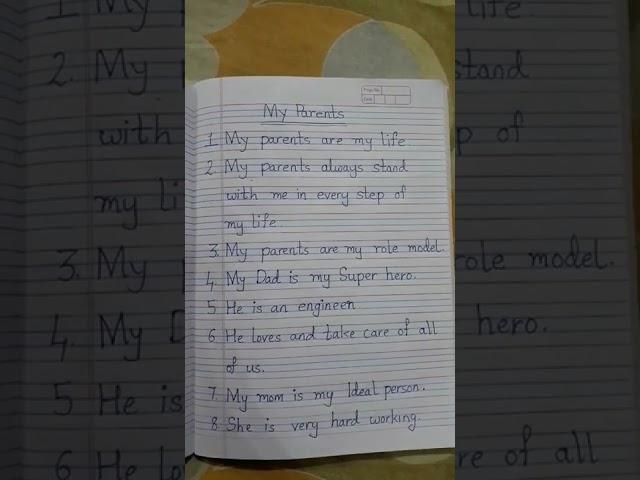 Page No.
Date
My Parents
1. My parents are my life
2. My parents always stand
with me in every step of
my life.
3. My parents are my role model.
4. My Dad is my Super hero.
5 He is an engineer
6 He loves and take care of all
of us.
7. My mom is my Ideal person.
8. She is very hard working.